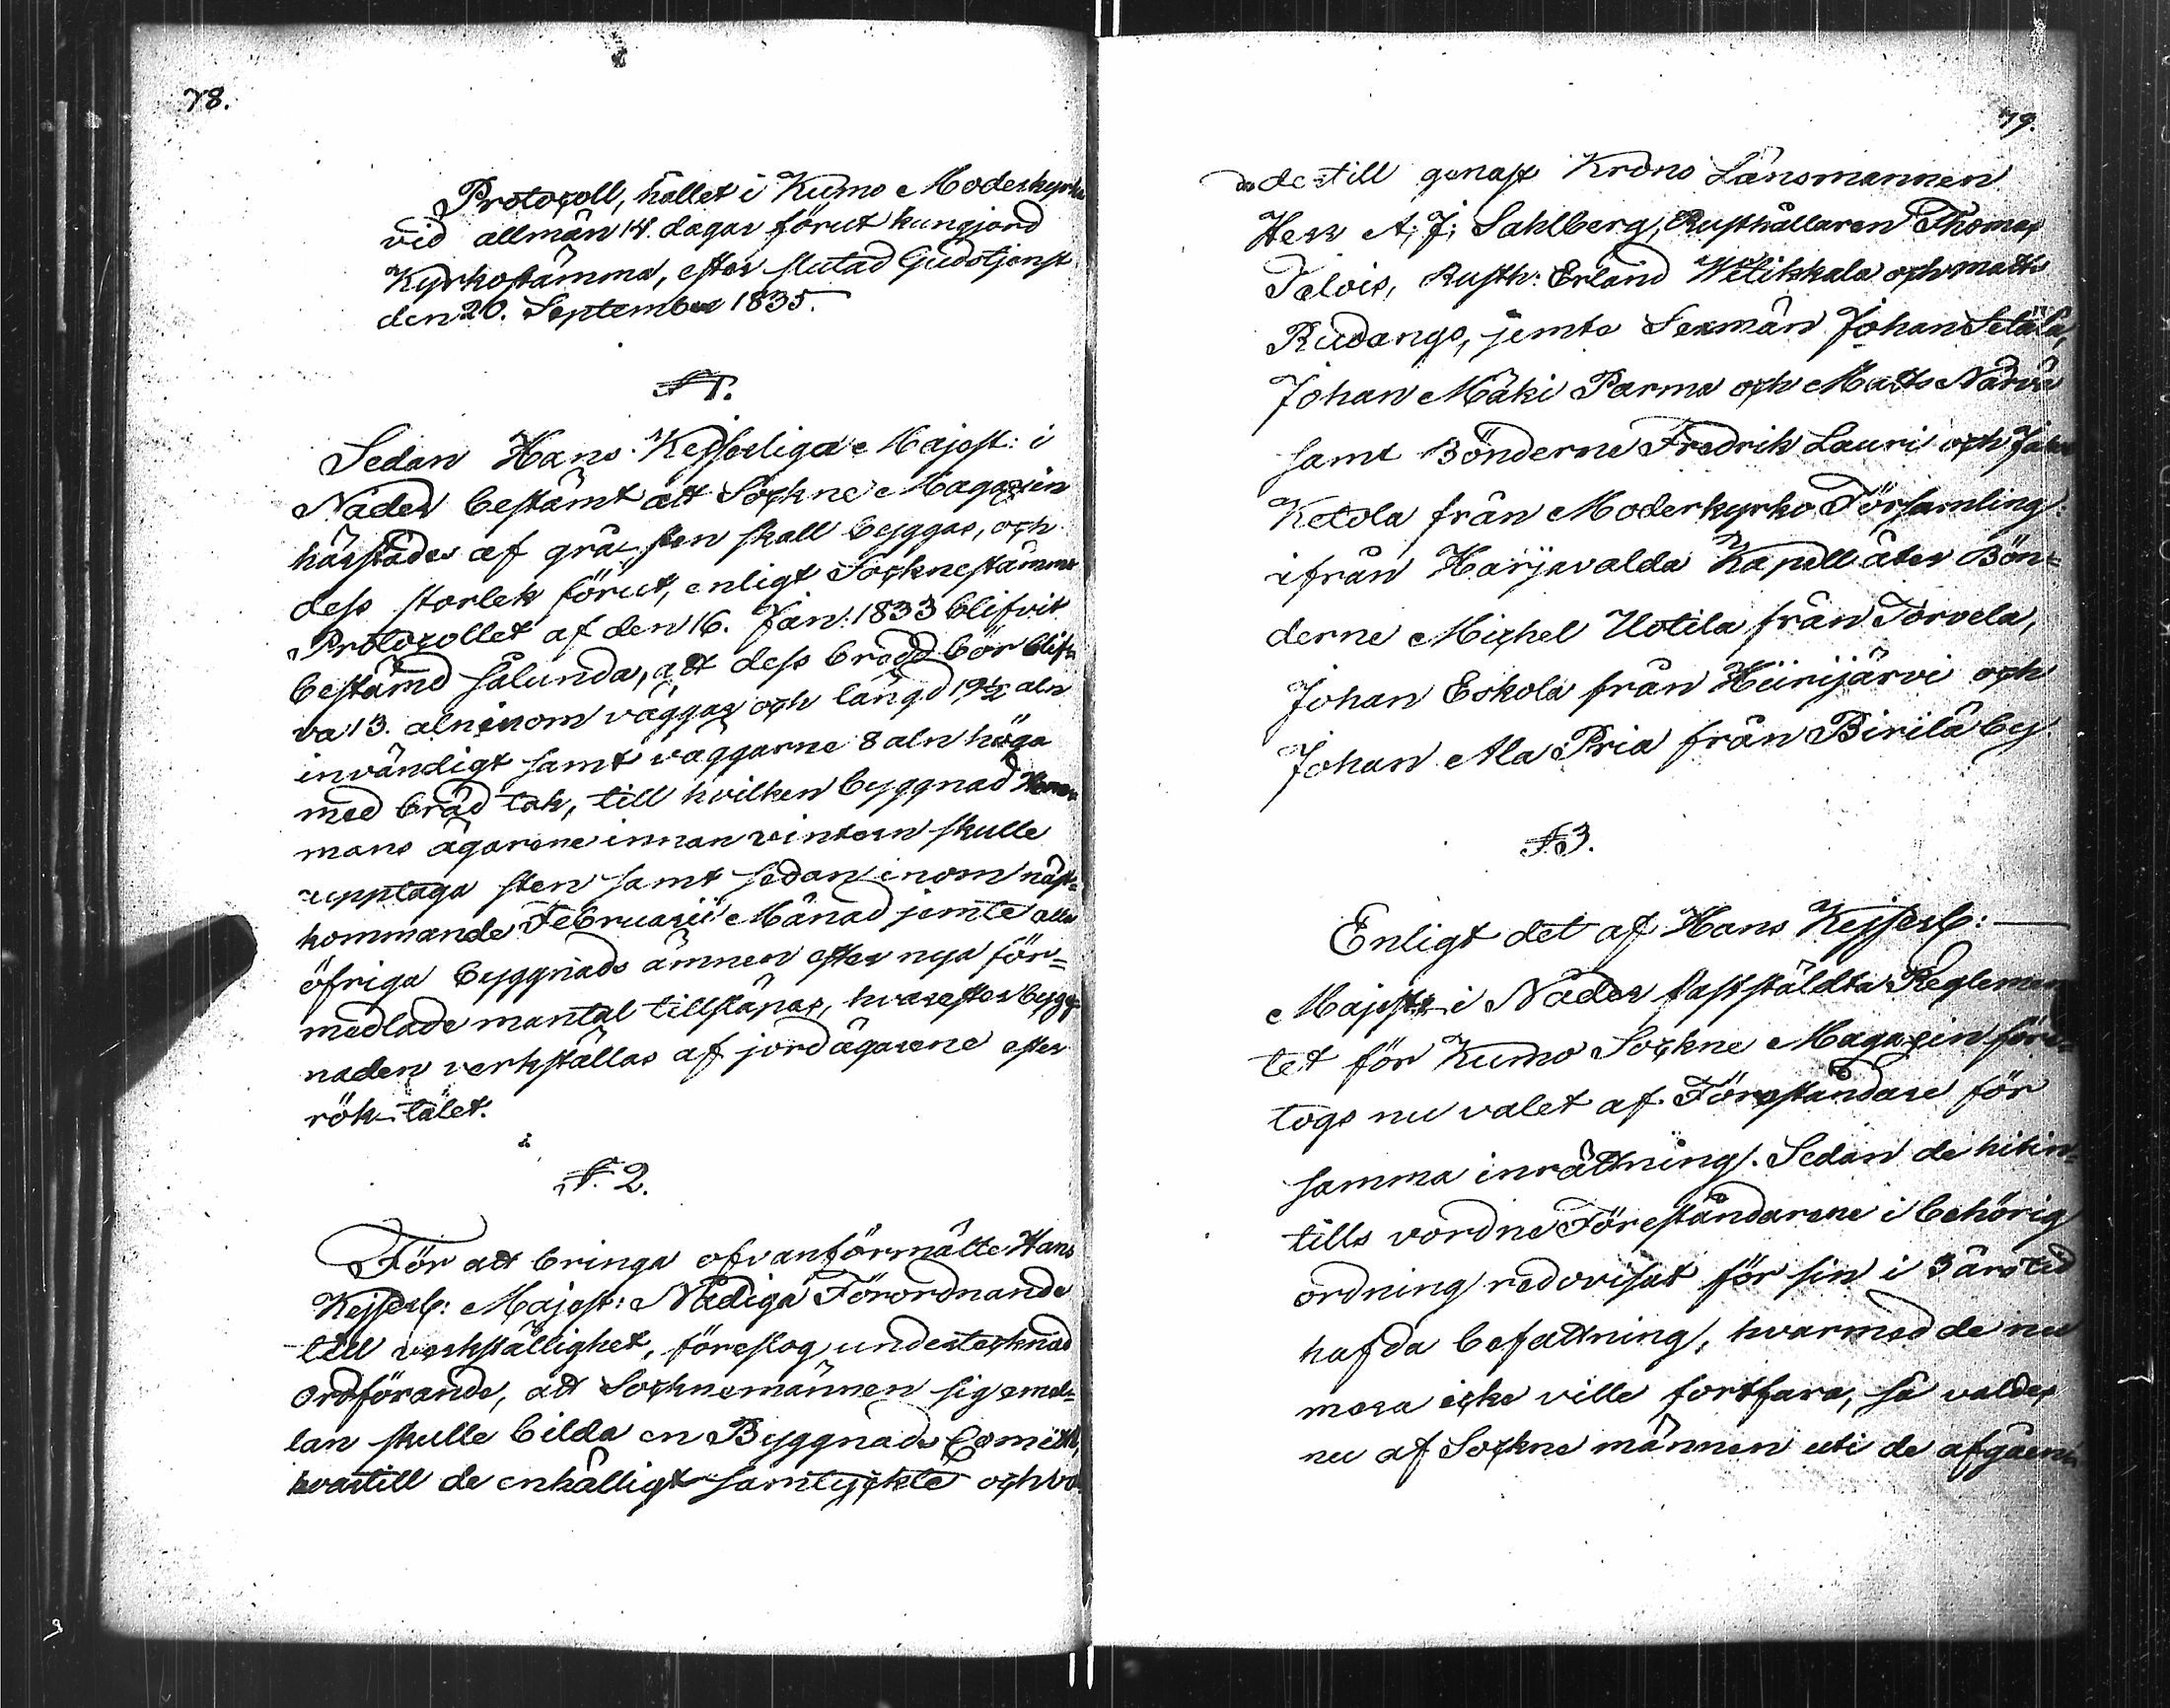 78.
Protocoll, hållet i Kumo Moderkyrka
vid allmän 14. dagar förut kungjord
Kyrkostämma, efter slutad Gudstjenst
den 20. September 1835.
§ 1.
Sedan Hans Kejserliga Majest: i
Nåder bestämt att Sockne Magazin
härstädes af gråsten skall byggas, och
dess storlek förut, enligt Socknestämmo
Protocollet af den 16. Jan: 1833 blifvit
bestämd sålunda, att dess bredd bör blif-
va 13. aln inom väggar och längd 19½ aln
invändigt samt väggarne 8 aln höga
med bräd tak, till hvilken byggnad Hem-
mans ägarene innan vintern skulle
upptaga sten samt sedan inom näst-
kommande Februarii Månad jemte alla
öfriga byggnads ämnen efter nya för=
medlade mantal tillsläpas, hvarefter bygg-
naden verkställas af jordägarene efter
röktalet.
§. 2.
För att bringa ofvanförmälte Hans
Kejserl: Majest: Nådiga Förordnande
till verkställighet, föreslog undertecknad
Ordförande, att Socknemännen sig emel=
lan skulle bilda en Byggnads Comité,
hvartill de enhälligt samtyckte och val-
79.
de dertill genast Krono Länsmannen
Herr A: J: Sahlberg, Rusthållaren Thomas
Talois, Rusth: Erland Wälikkala och Matts
Rudanga, jemte Sexmän Johan Setälä,
Johan Mäki Parma och Matts Närvä
samt Bönderne Fredrik Lauri och
Ketola från Moderkyrko Församling:
ifrån Harjavalda Kapell åter Bön=
derne Michel Uotila från Torvela,
Johan Eskola från Hiirijärvi och
Johan Ala Pria från Pirilä by.
§ 3.
Enligt det af Hans Kejserl:
Majest: i Nåder fastställdta Reglemen-
tet för Kumo Sockne Magazin före-
togs nu valet af Föreståndare för
samma inrättning. Sedan de hitin-
tills vordne Föreståndarene i behörig
ordning redovisat för sin i 3 års tid
hafda befattning, hvarmed de nu
mera icke ville fortfara, så valdes
nu af Sockne männen uti de afgåen-